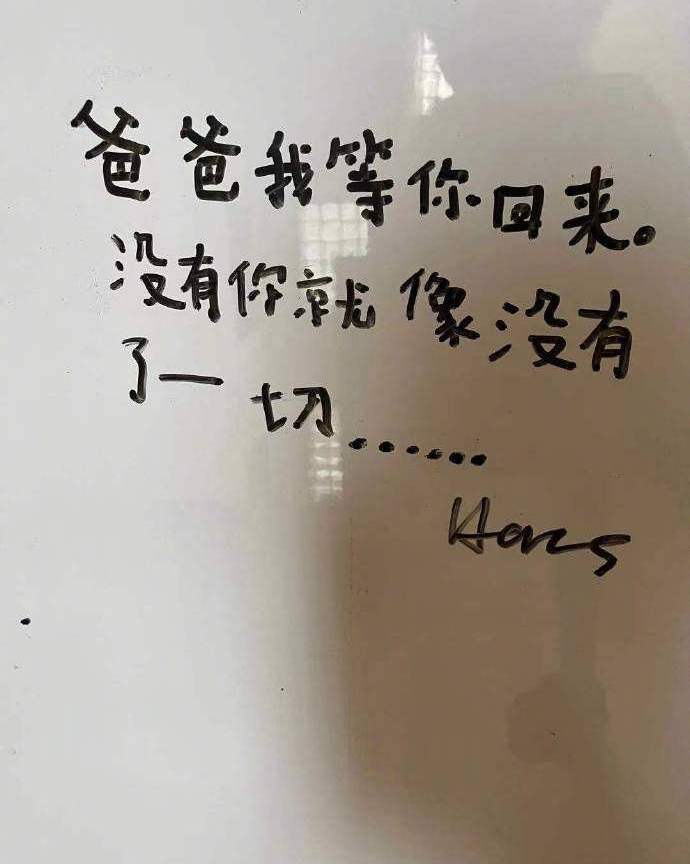 爸爸我等你回来。
没有你就像没有
了一切……
Hans